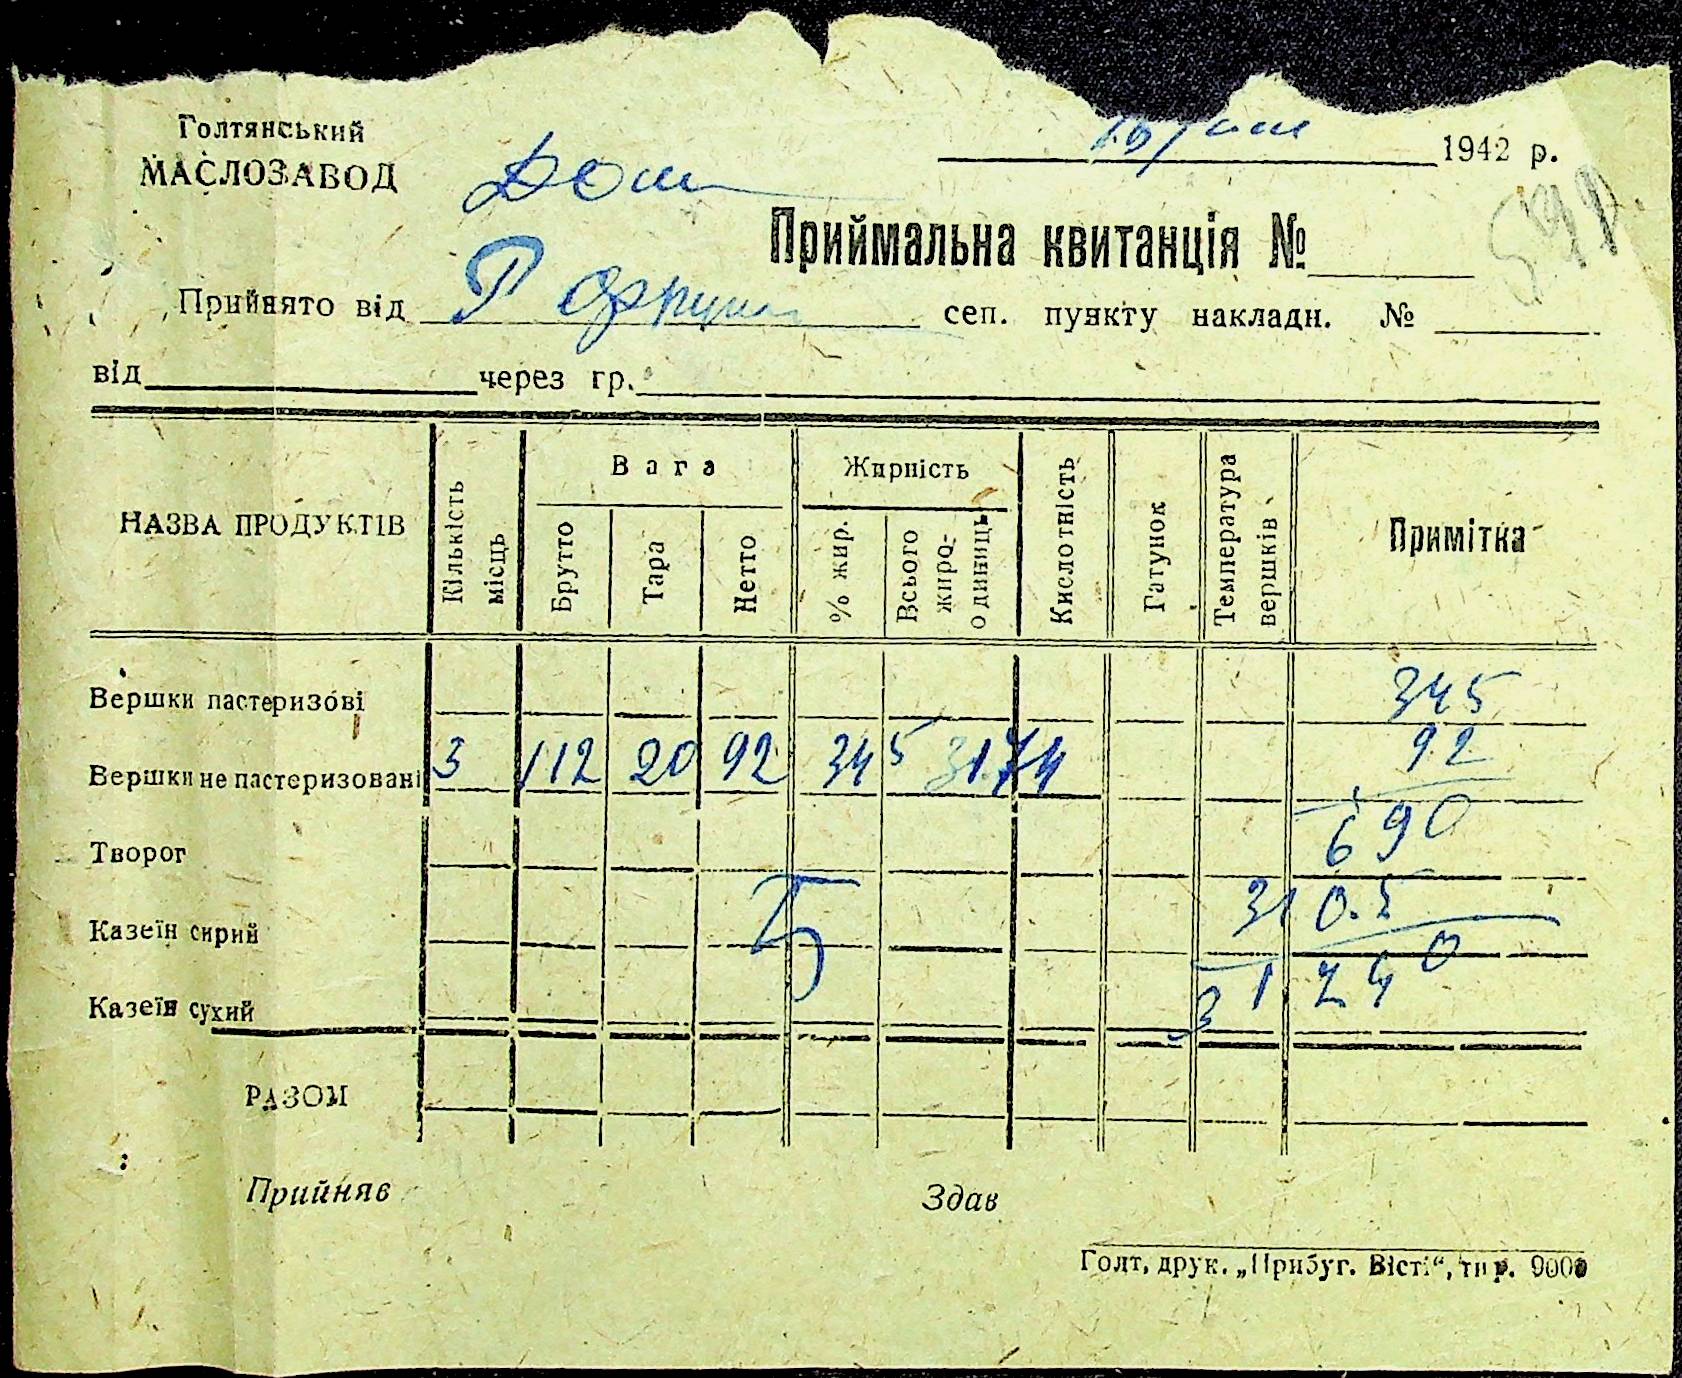 Голтянський
МАСЛОЗАВОД
1942 р.
Приймальна квитанція №
Прийнято від сеп. пункту накладн. №
від через гр.
НАЗВА ПРОДУКТІВ
Кількість місць
Вага
Брутто
Тара
Нетто
Жирність
% жир.
Всього жиро-одиниць
Кислотність
Гатунок
Температура вершків
Примітка
Вершки пастеризові 345
Вершки не пастеризовані 3 112 20 92 345 3174 92
Творог 690
Казеїн сирий 310.5
Казеїн сухий 31740
РАЗОМ
Прийняв Здав
Голт, друк. „Прибуг. Вісті“, тир. 9000